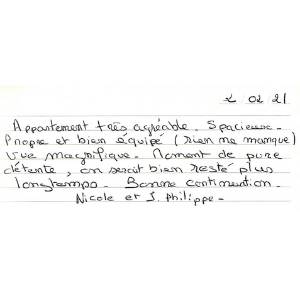 2 02 21
Appartement très agréable. Spacieux.
Propre et bien équipé (rien ne manque)
Vue magnifique. Moment de pure
détente, on serait bien resté plus
longtemps. Bonne continuation.
Nicole et J. Philippe.